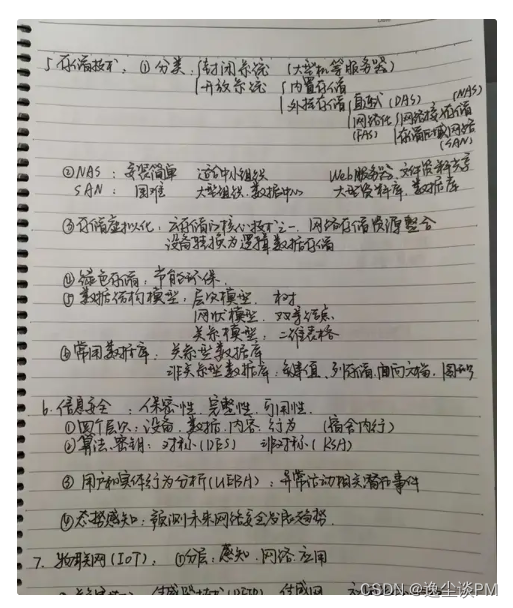 5. 存储技术: ① 分类: 封闭系统 (大型机等服务器)
开放系统 内置存储
外挂存储 直连式 (DAS) (NAS)
网络化 网络接入存储
(FAS) 存储区域网络
(SAN)
② NAS: 安装简单 适合中小组织 Web服务器、文件资料共享
SAN: 困难 大型组织、数据中心 大型资料库、数据库
③ 存储虚拟化: 云存储的核心技术之一, 网络存储资源整合
设备转换为逻辑数据存储
④ 绿色存储: 节能环保.
⑤ 数据结构模型: 层次模型: 树
网状模型:
关系模型: 二维表格
⑥ 常用数据库: 关系型数据库
非关系型数据库: 键值、列存储、面向文档、图形
6. 信息安全: 保密性、完整性、可用性.
① 四个层次: 设备、数据、内容、行为
② 算法、密钥: 对称 (DES) 非对称 (RSA)
③ 用户和实体行为分析 (UEBA): 异常活动相关潜在事件
④ 态势感知: 预测未来网络安全发展趋势.
7. 物联网 (IOT): ① 分层: 感知、网络、应用
CSDN @逸尘谈PM